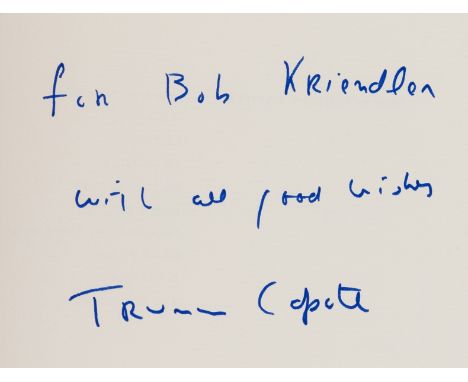 for Bob Kriendler
with all good wishes
Truman Capote